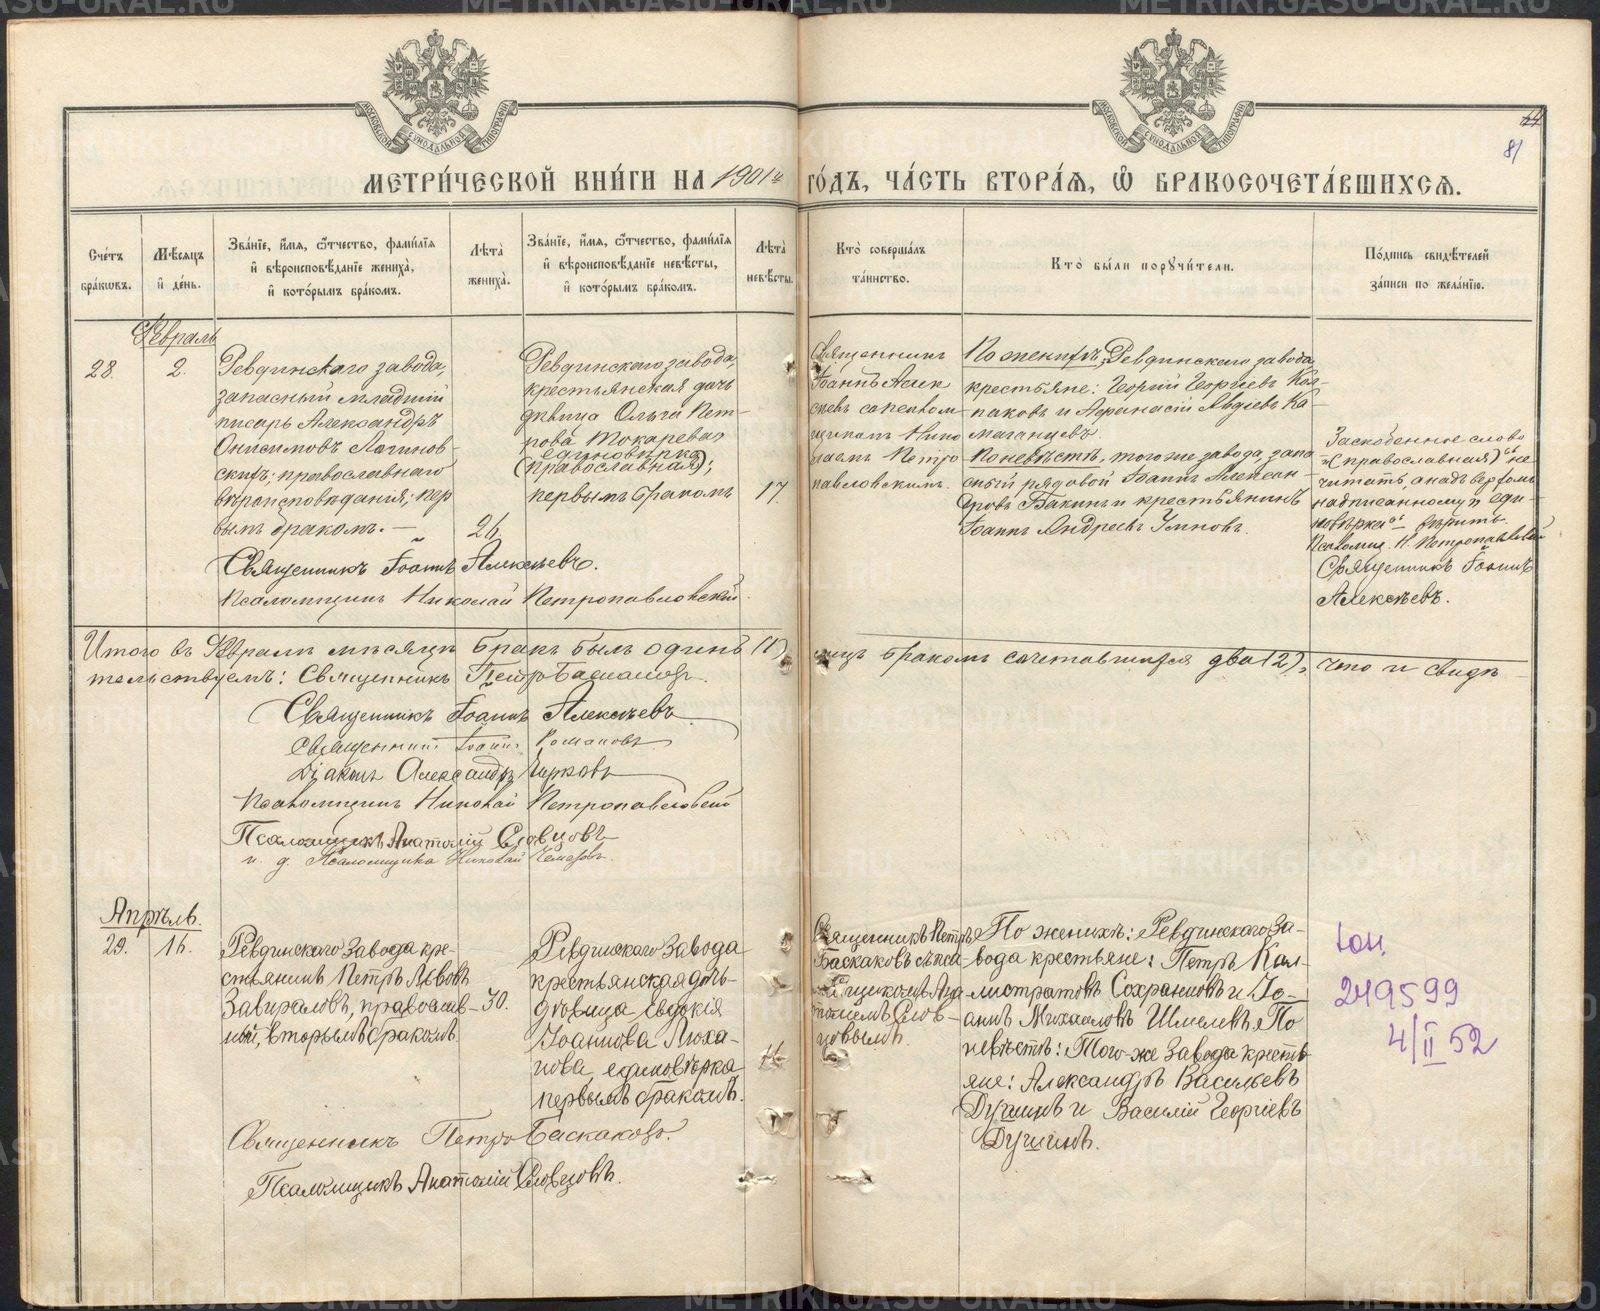 МОСКОВСКОЙ СѴНОДАЛЬНОЙ ТИПОГРАФІИ
МОСКОВСКОЙ СѴНОДАЛЬНОЙ ТИПОГРАФІИ
81
МЕТРИ́ЧЕСКОЙ КНИ́ГИ НА 1901й ГО́ДЪ, ЧА́СТЬ ВТОРА́Я, Ѽ БРАКОСОЧЕТА́ВШИХСЯ.
Сче́тъ бра́ковъ.
Мѣ́сяцъ и҆ де́нь.
Зва́нїе, и҆́мя, ѻ҆́тчество, фами́лїя и҆ вѣроисповѣ́данїе жениха̀, и҆ кото́рымъ бра́комъ.
Лѣ́та жениха̀.
Зва́нїе, и҆́мя, ѻ҆́тчество, фами́лїя и҆ вѣроисповѣ́данїе невѣ́сты, и҆ кото́рымъ бра́комъ.
Лѣ́та невѣ́сты.
Кто̀ соверша́лъ та́инство.
Кто̀ бы́ли порꙋчи́тели.
По́дпись свидѣ́телей за́писи по жела́нїю.
Февраль
28.
2.
Ревдинскаго завода,
запасный младшій
писарь Александръ
Онисимовъ Логинов-
скихъ; православнаго
вѣроисповѣданія; пер
вымъ бракомъ. —
26
Ревдинскаго завода,
крестьянская дочь
дѣвица Ольга Пет-
рова Токарева,
единовѣрка
(православная);
первымъ бракомъ
17.
Священникъ
Іоаннъ Алек
сѣевъ съ псалом-
щикомъ Нико
лаемъ Петро
павловскимъ.
По женихѣ: Ревдинскаго завода
крестьяне: Георгій Георгіевъ Кол-
паковъ и Афанасій Авдіевъ Ка-
маганцевъ.
По невѣстѣ: того же завода, запа
сный рядовой Іоаннъ Алексан
дровъ Бакинъ и крестьянинъ
Іоаннъ Андреевъ Умновъ.
Заскобенное слово
"(православная)" не
читать, а надъ верхомъ
надписанному "еди-
новѣрка" вѣрить.
Псаломщ. Н. Петропавловскій
Священникъ Іоаннъ
Алексѣевъ.
Священникъ Іоаннъ Алексѣевъ.
Псаломщикъ Николай Петропавловскій.
Итого въ Февралѣ мѣсяцѣ бракъ былъ одинъ (1), лицъ бракомъ сочетавшихся два (2), что и свидѣ
тельствуемъ: Священникъ Петръ Баскаковъ.
Священникъ Іоаннъ Алексѣевъ
Священникъ Іоаннъ Романовъ
Діаконъ Александръ Чирковъ
Псаломщикъ Николай Петропавловскій
Псаломщикъ Анатолій Словцовъ
и. д. Псаломщика Николай Чемезовъ.
Апрѣль.
29.
16.
Ревдинскаго Завода кре-
стьянинъ Петръ Львовъ
Завираловъ, православ-
ный, вторымъ бракомъ.
30.
Ревдинскаго Завода
крестьянская дочь-
дѣвица Евдокія
Іоаннова Люха-
нова, единовѣрка
первымъ бракомъ.
16
Священникъ Петръ
Баскаковъ съ пса-
ломщикомъ Ана
толіемъ Слов-
цовымъ.
По женихѣ: Ревдинскаго За-
вода крестьяне: Петръ Кал-
листратовъ Сохрановъ и Іо-
аннъ Михаиловъ Шмелевъ, По
невѣстѣ: Того-же Завода крестъ-
яне: Александръ Васильевъ
Душинъ и Василій Георгіевъ
Душинъ.
249599
4/II 52
Священникъ Петръ Баскаковъ.
Псаломщикъ Анатолій Словцовъ.
METRIKI.GASO-URAL.RU